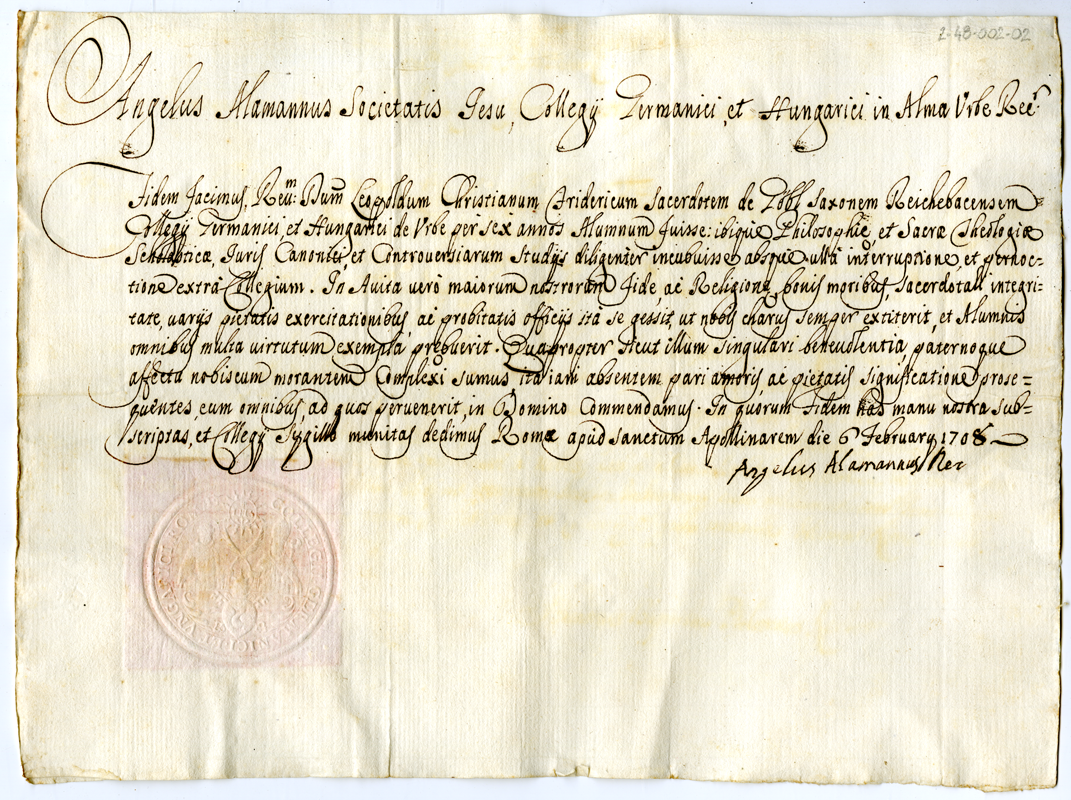 2-48-002-02
Angelus Alamannus Societatis Jesu, Collegij Germanici, et Hungarici in Alma Vrbe Rec.r
Fidem facimus, Reu:m Dum Leopoldum Christianum Fridericum Sacerdotem de Saxonem Reichebacensem
Collegij Germanici, et Hungarici de Vrbe per sex annos Alumnum fuisse: ibique Philosophię, et Sacræ Theologiæ
Scholasticæ, Iuris Canonici, et Controversiarum Studijs diligenter incubuisse absque ulla interruptione, et pernoc=
tione extrà Collegium. In Avita verò maiorum nostrorum fide, ac Religione, bonis moribus, Sacerdotali integri=
tate, varijs pietatis exercitationibus, ac probitatis officijs ità se gessit, ut nobis charus semper extiterit, et Alumnis
omnibus multa virtutum exempla prębuerit. Quapropter sicut illum singulari benevolentia, paternoque
affectu nobiscum morantem Complexi sumus, ita iam absentem pari amoris, ac pietatis significatione prose=
quentes eum omnibus, ad quos pervenerit, in Domino Commendamus. In quorum Fidem has manu nostra sub=
scriptas, et Collegij Sygillo munitas dedimus Romæ apud Sanctum Apollinarem die 6 February 1708
Angelus Alamannus Rec